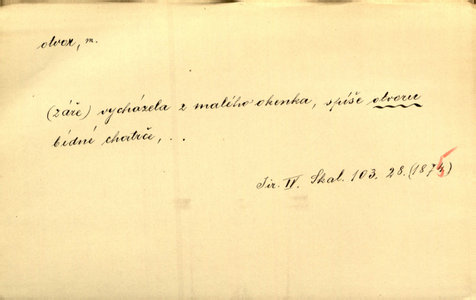 otvor, m.
(záře) vycházela z malého okenka, spíše otvoru
bídné chatrče, . .
Jir. IV. Skal. 103. 28. (1875)